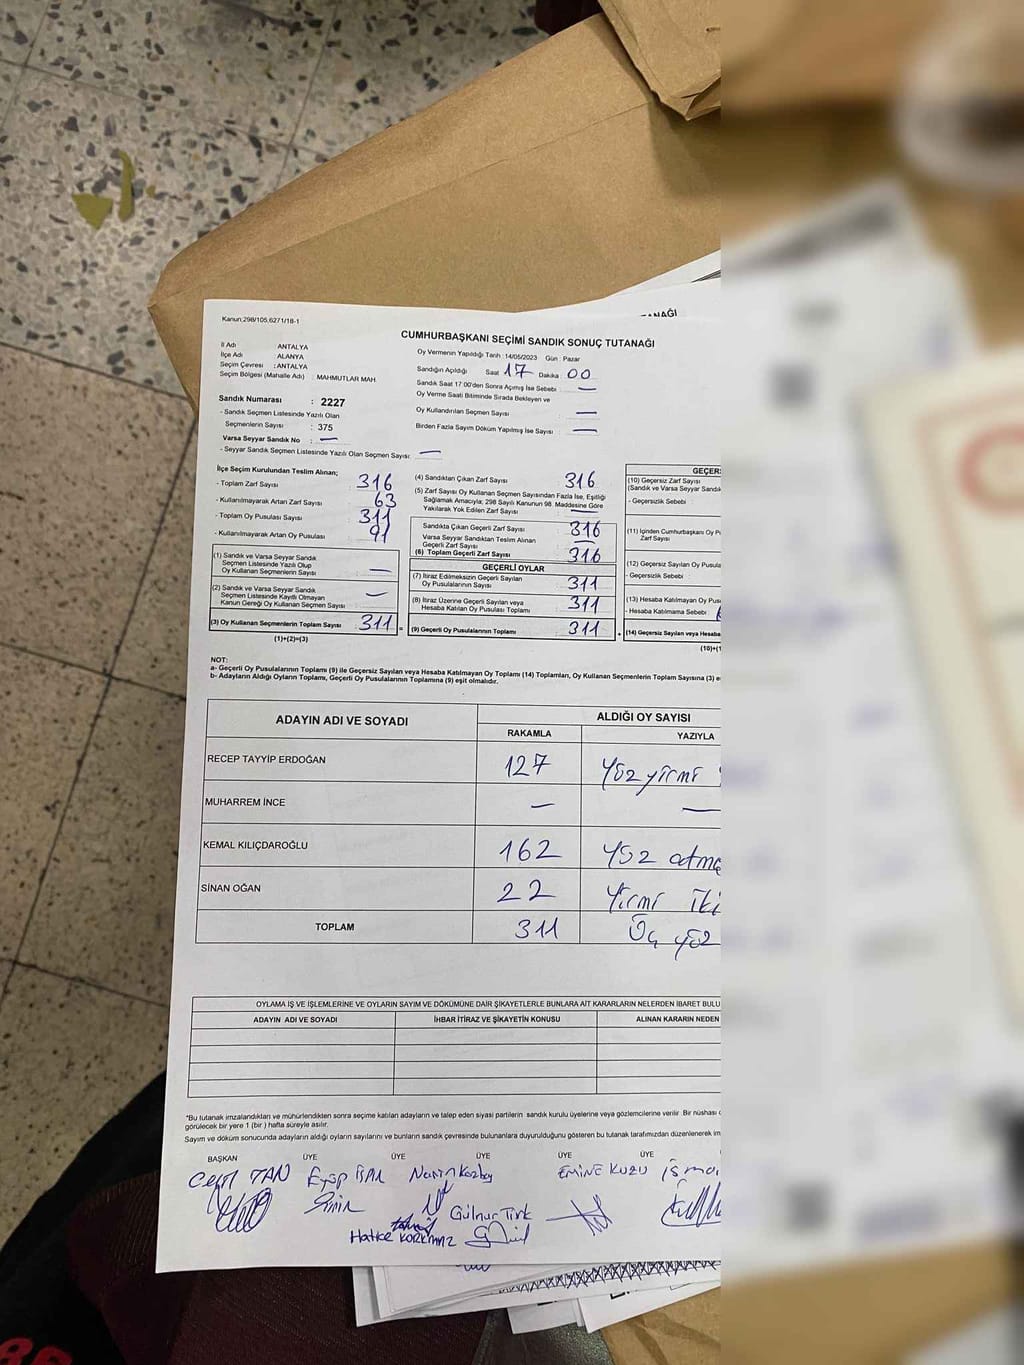 Kanun;298/105,6271/18-1
ANAĞI
CUMHURBAŞKANI SEÇİMİ SANDIK SONUÇ TUTANAĞI
İl Adı ANTALYA
İlçe Adı ALANYA
Seçim Çevresi : ANTALYA
Seçim Bölgesi (Mahalle Adı) : MAHMUTLAR MAH.
Sandık Numarası : 2227
- Sandık Seçmen Listesinde Yazılı Olan
Seçmenlerin Sayısı : 375
Varsa Seyyar Sandık No : —
- Seyyar Sandık Seçmen Listesinde Yazılı Olan Seçmen Sayısı: —
Oy Vermenin Yapıldığı Tarih : 14/05/2023 Gün : Pazar
Sandığın Açıldığı Saat : 17 Dakika : 00
Sandık Saat 17:00'den Sonra Açımış İse Sebebi : —
Oy Verme Saati Bitiminde Sırada Bekleyen ve
Oy Kullandırılan Seçmen Sayısı : —
Birden Fazla Sayım Döküm Yapılmış İse Sayısı : —
İlçe Seçim Kurulundan Teslim Alınan;
- Toplam Zarf Sayısı : 316
- Kullanılmayarak Artan Zarf Sayısı : 63
- Toplam Oy Pusulası Sayısı : 311
- Kullanılmayarak Artan Oy Pusulası : 91
(1) Sandık ve Varsa Seyyar Sandık
Seçmen Listesinde Yazılı Olup
Oy Kullanan Seçmenlerin Sayısı : —
(2) Sandık ve Varsa Seyyar Sandık
Seçmen Listesinde Kayıtlı Olmayan
Kanun Gereği Oy Kullanan Seçmen Sayısı : —
(3) Oy Kullanan Seçmenlerin Toplam Sayısı : 311 =
(1)+(2)=(3)
(4) Sandıktan Çıkan Zarf Sayısı : 316
(5) Zarf Sayısı Oy Kullanan Seçmen Sayısından Fazla İse, Eşitliği
Sağlamak Amacıyla; 298 Sayılı Kanunun 98. Maddesine Göre
Yakılarak Yok Edilen Zarf Sayısı : —
Sandıkta Çıkan Geçerli Zarf Sayısı : 316
Varsa Seyyar Sandıktan Teslim Alınan
Geçerli Zarf Sayısı : —
(6) Toplam Geçerli Zarf Sayısı : 316
GEÇERLİ OYLAR
(7) İtiraz Edilmeksizin Geçerli Sayılan
Oy Pusulalarının Sayısı : 311
(8) İtiraz Üzerine Geçerli Sayılan veya
Hesaba Katılan Oy Pusulası Toplamı : 311
(9) Geçerli Oy Pusulalarının Toplamı : 311 +
GEÇERS
(10) Geçersiz Zarf Sayısı
(Sandık ve Varsa Seyyar Sandık
- Geçersizlik Sebebi
(11) İçinden Cumhurbaşkanı Oy P
Zarf Sayısı
(12) Geçersiz Sayılan Oy Pusula
- Geçersizlik Sebebi
(13) Hesaba Katılmayan Oy Pus
- Hesaba Katılmama Sebebi :
(14) Geçersiz Sayılan veya Hesaba
(10)+(1
NOT:
a- Geçerli Oy Pusulalarının Toplamı (9) ile Geçersiz Sayılan veya Hesaba Katılmayan Oy Toplamı (14) Toplamları, Oy Kullanan Seçmenlerin Toplam Sayısına (3) e
b- Adayların Aldığı Oyların Toplamı, Geçerli Oy Pusulalarının Toplamına (9) eşit olmalıdır.
ADAYIN ADI VE SOYADI ALDIĞI OY SAYISI
RAKAMLA YAZIYLA
RECEP TAYYİP ERDOĞAN 127 Yüz yirmi
MUHARREM İNCE — —
KEMAL KILIÇDAROĞLU 162 Yüz atmı
SİNAN OĞAN 22 Yirmi iki
TOPLAM 311 Üç yüz
OYLAMA İŞ VE İŞLEMLERİNE VE OYLARIN SAYIM VE DÖKÜMÜNE DAİR ŞİKAYETLERLE BUNLARA AİT KARARLARIN NELERDEN İBARET BULU
ADAYIN ADI VE SOYADI İHBAR İTİRAZ VE ŞİKAYETİN KONUSU ALINAN KARARIN NEDEN
*Bu tutanak imzalandıktan ve mühürlendikten sonra seçime katılan adayların ve talep eden siyasi partilerin sandık kurulu üyelerine veya gözlemcilerine verilir. Bir nüshası
görülecek bir yere 1 (bir) hafta süreyle asılır.
Sayım ve döküm sonucunda adayların aldığı oyların sayılarını ve bunların sandık çevresinde bulunanlara duyurulduğunu gösteren bu tutanak tarafımızdan düzenlenerek im
BAŞKAN ÜYE ÜYE ÜYE ÜYE
TAN Eyüp EMİNE KUZU İsma
Gülnur Türk
Hatice Korkmaz